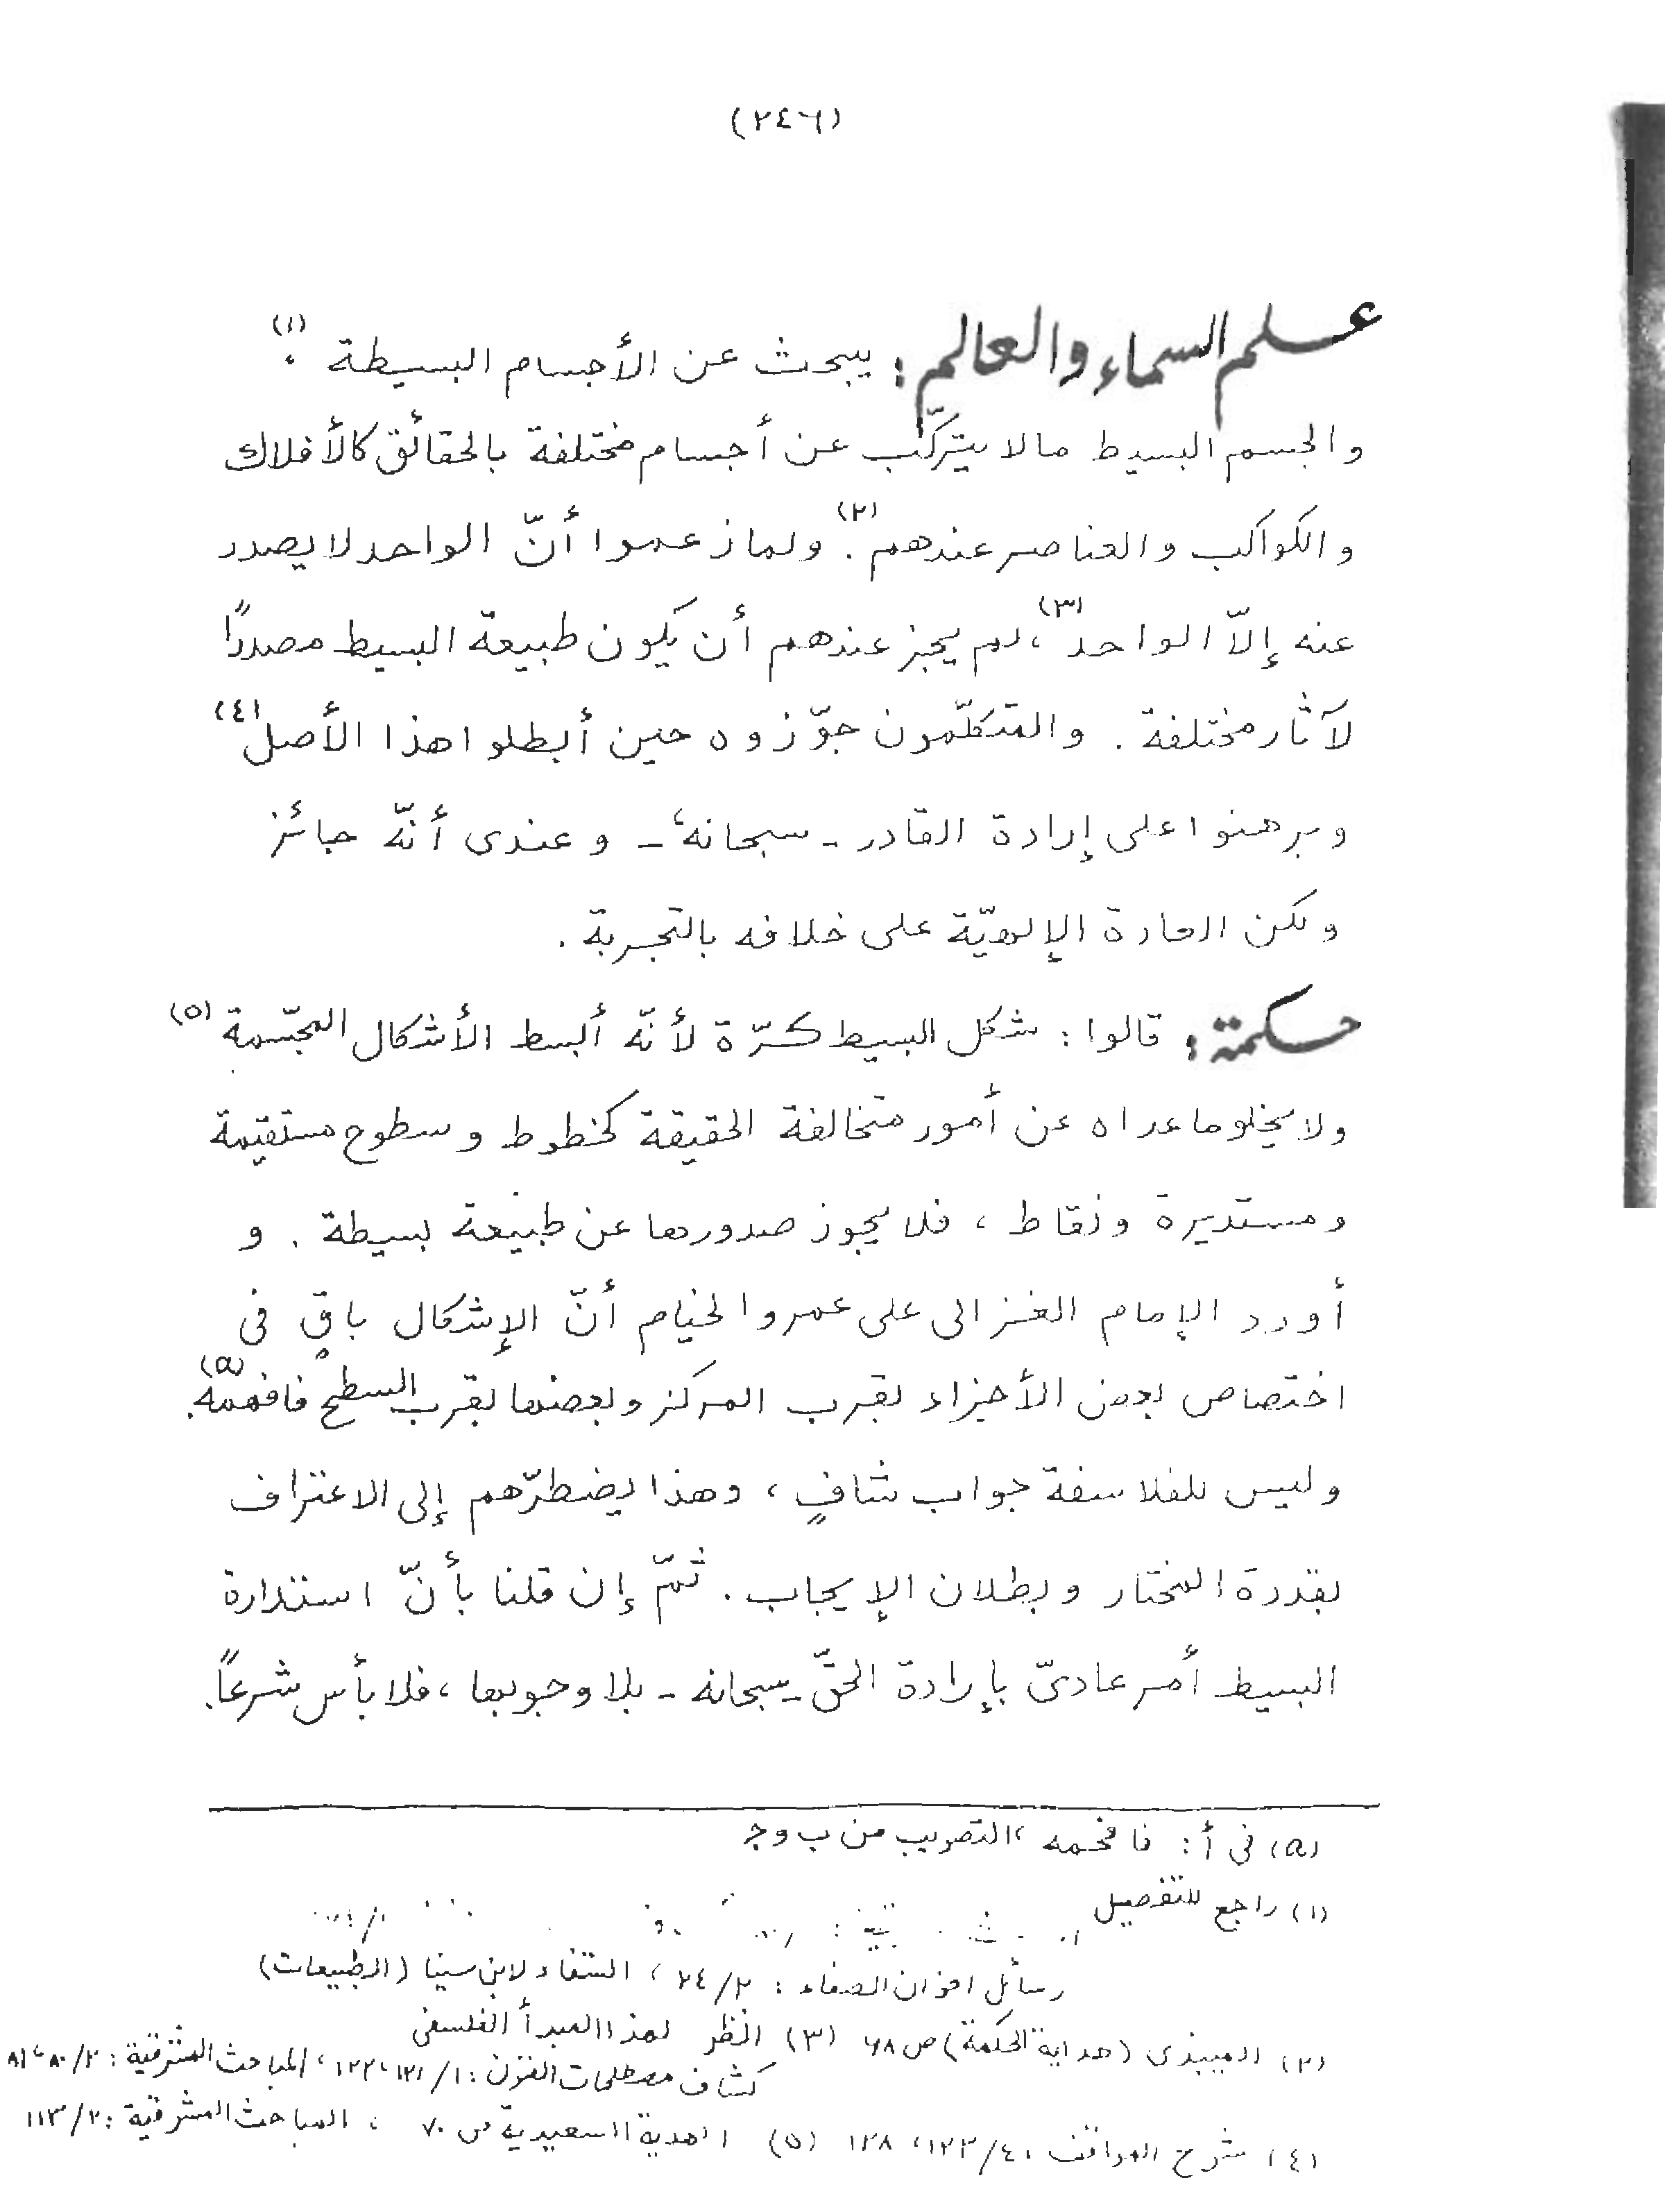 (٢٤٦)
علم السماء والعالم: يبحث عن الأجسام البسيطة (١)،
والجسم البسيط مالا يتركّب عن أجسام مختلفة بالحقائق كالأفلاك
والكواكب والعناصر عندهم (٢). ولما زعموا أنّ الواحد لا يصدر
عنه إلاّ الواحد (٣)، لم يجز عندهم أن يكون طبيعة البسيط مصدرًا
لآثار مختلفة. والمتكلّمون جوّزوه حين أبطلوا هذا الأصل (٤)
وبرهنوا على إرادة القادر - سبحانه - وعندى أنّه جائز
ولكن العادة الإلهيّة على خلافه بالتجربة.
حكمة: قالوا: شكل البسيط كرّة لأنّه أبسط الأشكال المجسّمة (٥)
ولا يخلو ما عداه عن أمور متخالفة الحقيقة كخطوط وسطوح مستقيمة
ومستديرة ونقاط، فلا يجوز صدورها عن طبيعة بسيطة. و
أورد الإمام الغزالى على عمرو الخيام أنّ الإشكال باقٍ فى
اختصاص بعض الأجزاء بقرب المركز وبعضها بقرب السطح فافهمه (a).
وليس للفلاسفة جواب شافٍ، وهذا يضطرّهم إلى الاعتراف
بقدرة المختار وبطلان الإيجاب. ثمّ إن قلنا بأنّ استدارة
البسيط أمر عادىّ بإرادة الحقّ - سبحانه - بلا وجوبها، فلا بأس شرعًا.
(a) فى أ: فافحمه، التصويب من ب وج
(١) راجع للتفصيل
رسائل اخوان الصفاء: ٢/٢٤، الشفاء لابن سينا (الطبيعات)
(٢) الميبذى (هداية الحكمة) ص ٦٨ (٣) انظر لهذا المبدأ الفلسفى
كشاف مصطلحات الفنون: ١/١٢١، ١٢٢، المباحث المشرقية: ٢/٨٠، ٨١
(٤) شرح المواقف ٤/١٢٣، ١٢٨ (٥) الهدية السعيدية ص ٧٠، المباحث المشرقية: ٢/١١٣